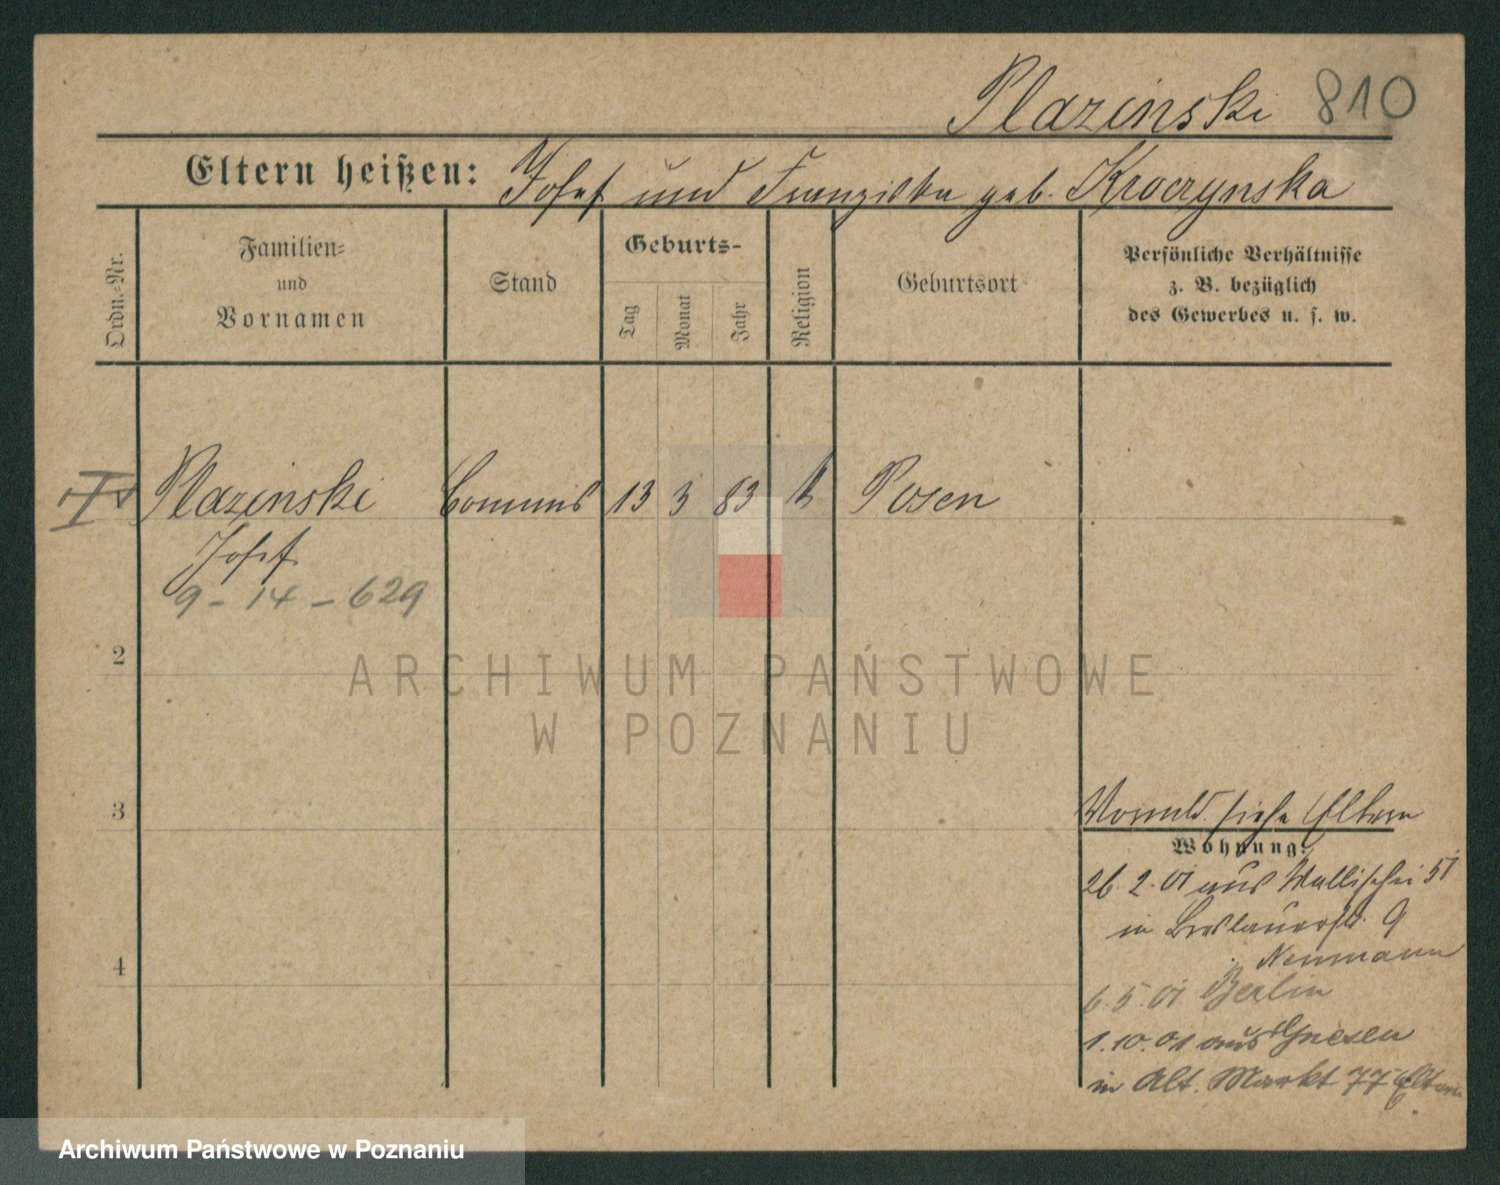 Plazinski 810
Eltern heißen: Josef und Franziska geb. Kroczynska
Ordn.-Nr.
Familien-
und
Vornamen
Stand
Geburts-
Tag
Monat
Jahr
Religion
Geburtsort
Persönliche Verhältnisse
z. B. bezüglich
des Gewerbes u. s. w.
Plazinski Commis 13 3 83 k Posen
Josef
9 - 14 - 629
2
ARCHIWUM PAŃSTWOWE
W POZNANIU
3
siehe Eltern
Wohnung:
26. 2. 01 aus Wallischei 51
in Breslauerstr. 9
Neumann
6. 5. 01 Berlin
4
1. 10. 01 aus Gnesen
in Alt. Markt 77 Eltern
Archiwum Państwowe w Poznaniu